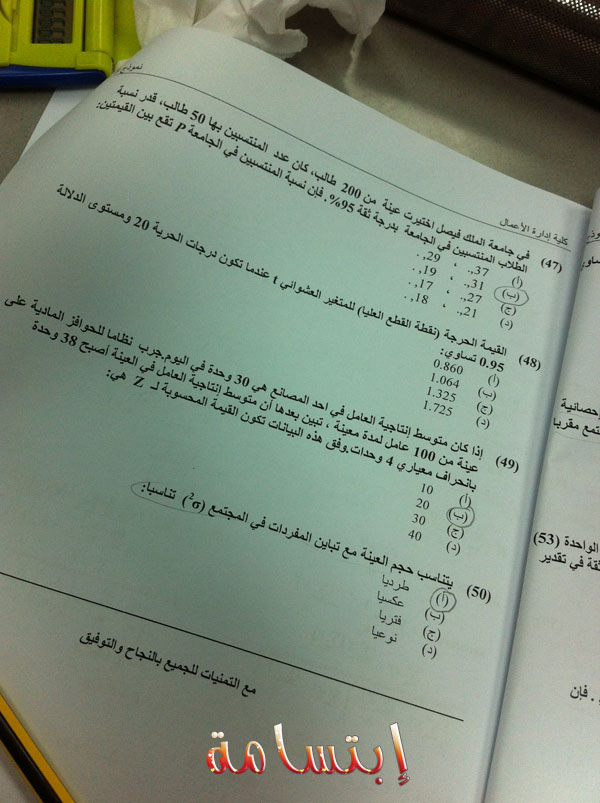 نموذج
كلية إدارة الأعمال
(47) في جامعة الملك فيصل اختيرت عينة من 200 طالب، كان عدد المنتسبين بها 50 طالب، قدر نسبة
الطلاب المنتسبين في الجامعة بدرجة ثقة 95%. فإن نسبة المنتسبين في الجامعة P تقع بين القيمتين:
(أ) 37,. ، 29,.
(ب) 31,. ، 19,.
(ج) 27,. ، 17,.
(د) 21,. ، 18,.
(48) القيمة الحرجة (نقطة القطع العليا) للمتغير العشوائي t عندما تكون درجات الحرية 20 ومستوى الدلالة
0.95 تساوي:
(أ) 0.860
(ب) 1.064
(ج) 1.325
(د) 1.725
(49) إذا كان متوسط إنتاجية العامل في احد المصانع هي 30 وحدة في اليوم.جرب نظاما للحوافز المادية على
عينة من 100 عامل لمدة معينة ، تبين بعدها أن متوسط إنتاجية العامل في العينة أصبح 38 وحدة
بانحراف معياري 4 وحدات.وفق هذه البيانات تكون القيمة المحسوبة لـ Z هي:
(أ) 10
(ب) 20
(ج) 30
(د) 40
(50) يتناسب حجم العينة مع تباين المفردات في المجتمع (σ²) تناسبا:
(أ) طرديا
(ب) عكسيا
(ج) فتريا
(د) نوعيا
مع التمنيات للجميع بالنجاح والتوفيق
إبتسامة
الواحدة (53)
ثقة في تقدير
. فإن